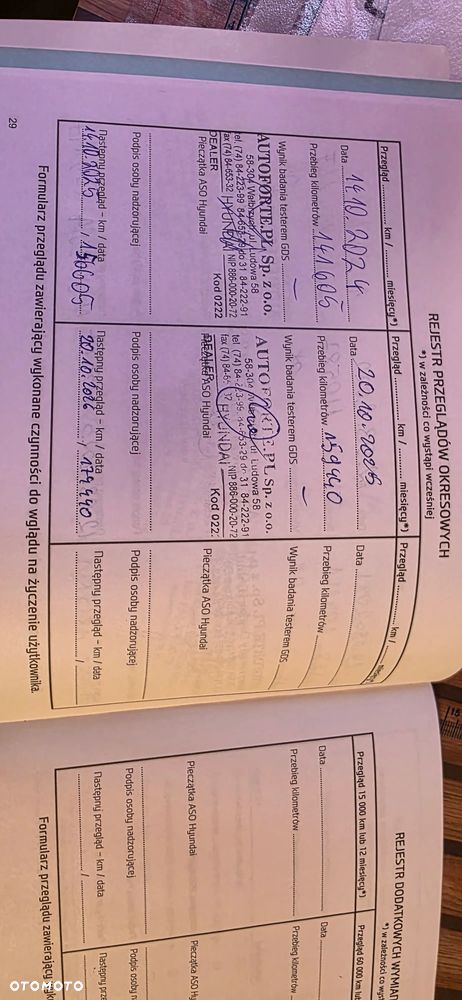 REJESTR PRZEGLĄDÓW OKRESOWYCH
*) w zależności co wystąpi wcześniej
Przegląd ............ km / ............ miesięcy*)
Data 14.10.2024
Przebieg kilometrów 141605
Wynik badania testerem GDS –
AUTOFORTE.PL Sp. z o.o.
58-304 Wałbrzych, ul. Ludowa 58
tel. (74) 84-223-99 do 31 84-222-91
fax (74) 84-653-32 HYUNDAI NIP 886-000-20-72
DEALER Kod 0222
Pieczątka ASO Hyundai
Podpis osoby nadzorującej
Następny przegląd – km / data
14.10.2025 / 156605
Przegląd ............ km / ............ miesięcy*)
Data 20.10.2025
Przebieg kilometrów 159440
Wynik badania testerem GDS –
AUTOFORTE.PL Sp. z o.o.
58-304 ul. Ludowa 58
tel. (74) 84-223-99, 84-653-29 do 31 84-222-91
fax (74) 84-653-32 HYUNDAI NIP 886-000-20-72
DEALER Kod 0222
Pieczątka ASO Hyundai
Podpis osoby nadzorującej
Następny przegląd – km / data
20.10.2026 / 174440
Przegląd ............ km /
Data
Przebieg kilometrów
Wynik badania testerem GDS
Pieczątka ASO Hyundai
Podpis osoby nadzorującej
Następny przegląd – km / data
Formularz przeglądu zawierający wykonane czynności do wglądu na życzenie użytkownika.
29
REJESTR DODATKOWYCH WYMIA
*) w zależności co wyst
Przegląd 15 000 km lub 12 miesięcy*)
Data
Przebieg kilometrów
Pieczątka ASO Hyundai
Podpis osoby nadzorującej
Następny przegląd – km / data
Przegląd 60 000 km lub
Data
Przebieg kilometrów
Pieczątka ASO Hy
Podpis osoby n
Następny prze
Formularz przeglądu zawierający wyk
OTOMOTO